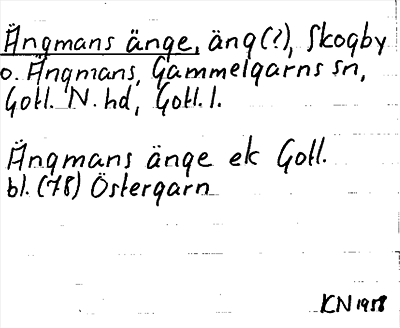 Ängmans änge, äng(?), Skogby
o. Ängmans, Gammelgarns sn,
Gotl. N. hd, Gotl. l.
Ängmans änge ek Gotl.
bl. (78) Östergarn
KN 1958